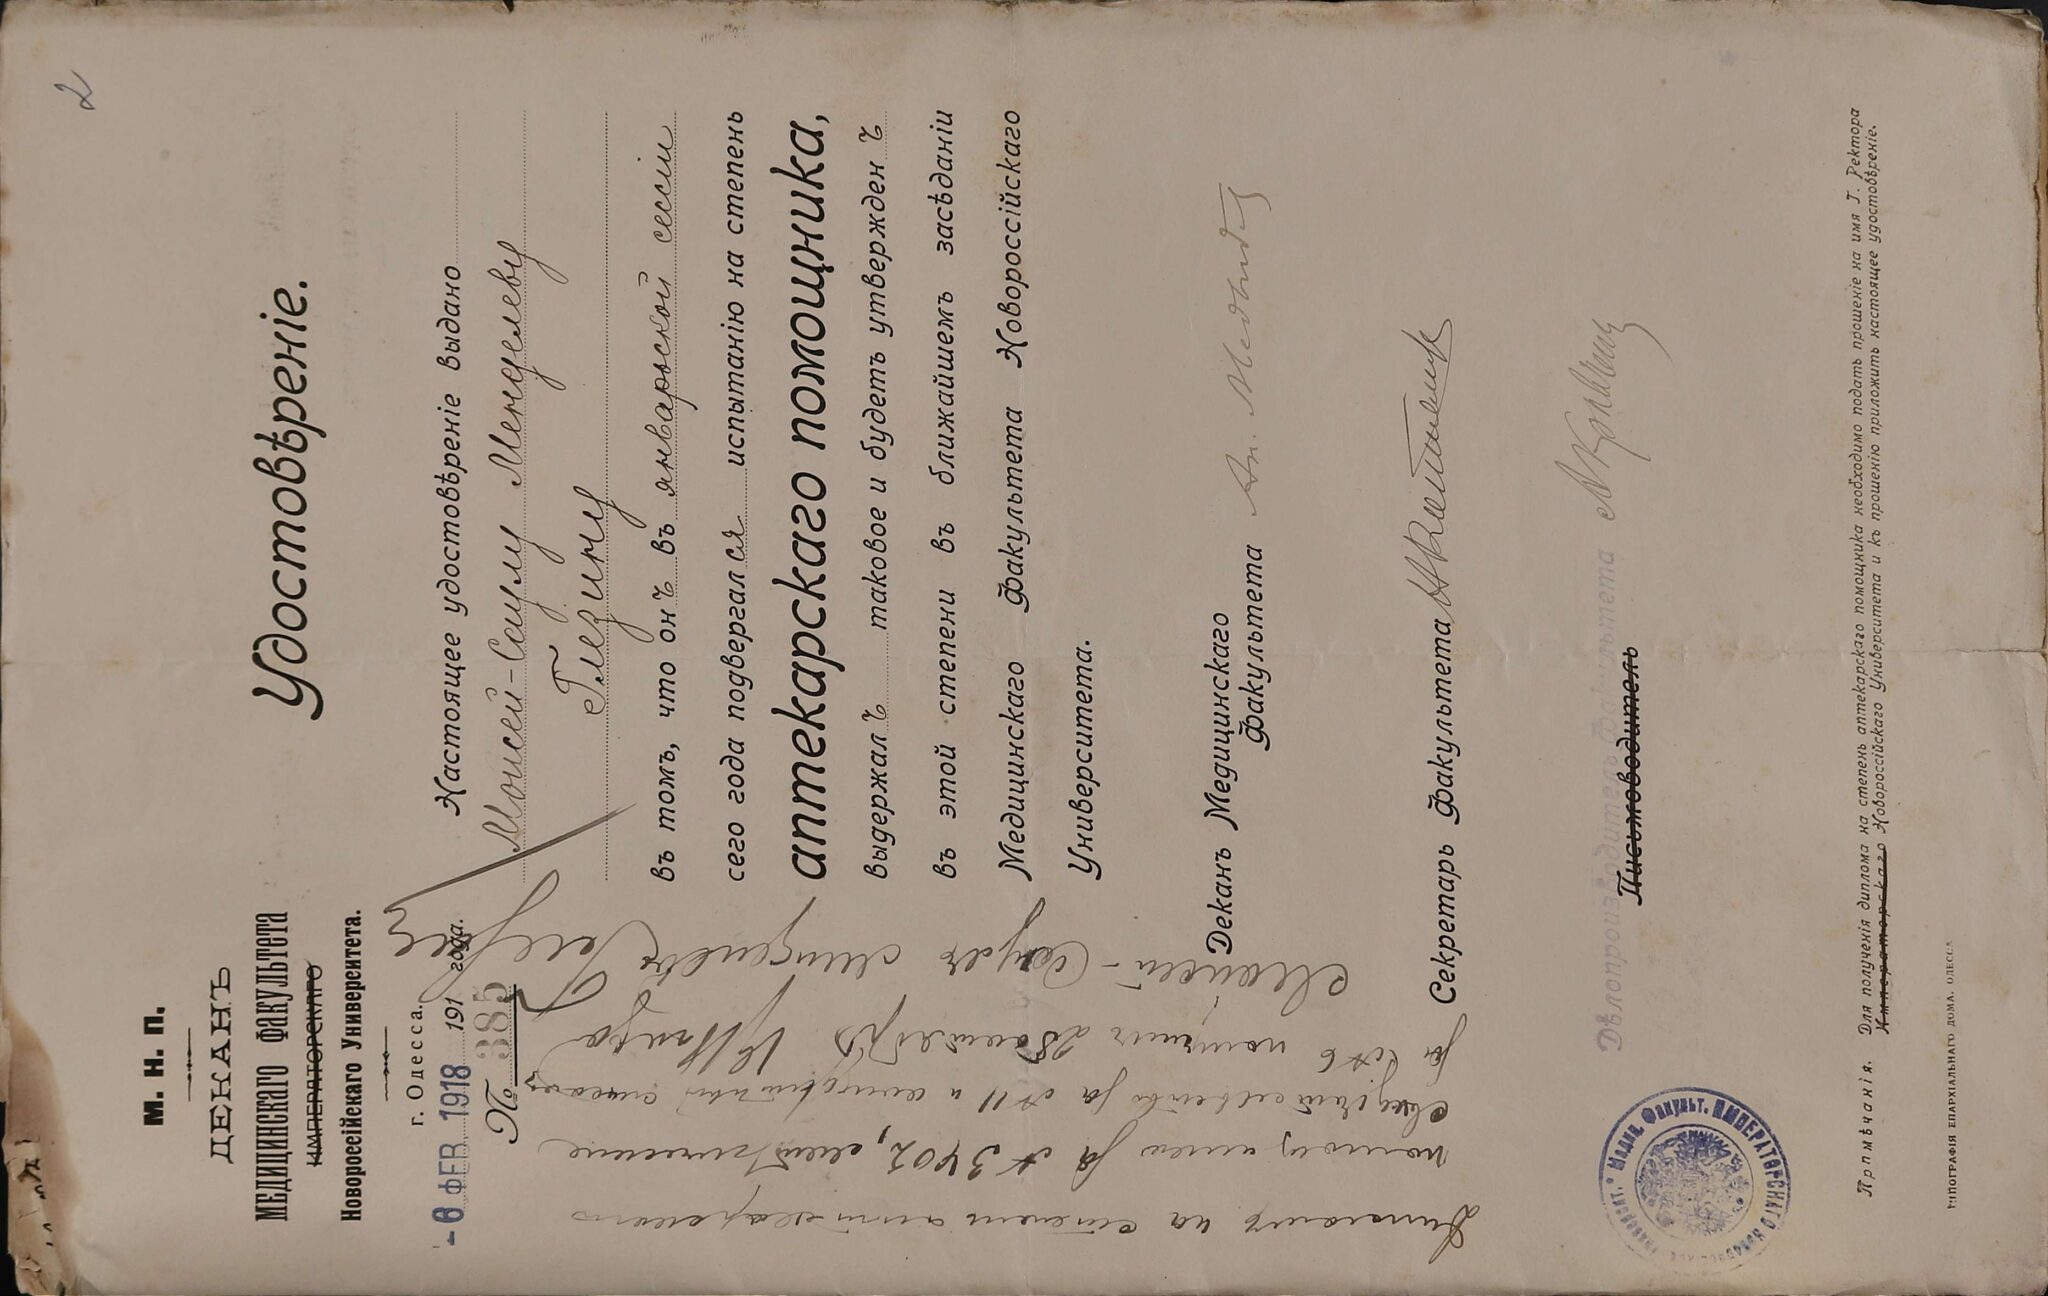 2
М. Н. П.
ДЕКАНЪ
МЕДИЦИНСКАГО ФАКУЛЬТЕТА
ИМПЕРАТОРСКАГО
Новороссійскаго Университета.
г. Одесса.
- 6 ФЕВ. 1918 191 года.
№ 385
Удостовѣреніе.
Настоящее удостовѣреніе выдано
Моисей-Саулу Менделеву
Глезину
въ томъ, что онъ въ январьской сессіи
сего года подвергался испытанію на степень
аптекарскаго помощника,
выдержалъ таковое и будетъ утвержденъ
въ этой степени въ ближайшемъ засѣданіи
Медицинскаго Факультета Новороссійскаго
Университета.
Деканъ Медицинскаго
Факультета
Секретарь Факультета
Дѣлопроизводитель Факультета
Письмоводитель
Дипломъ на степень аптекарскаго
помощника за № 3402, метрическое
свидѣтельство за № 11 и
за № 6 получилъ
Моисей-Саулъ Менделевъ Глезинъ
Примѣчанія. Для полученія диплома на степень аптекарскаго помощника необходимо подать прошеніе на имя Г. Ректора
Императорскаго Новороссійскаго Университета и къ прошенію приложить настоящее удостовѣреніе.
ТИПОГРАФІЯ ЕПАРХІАЛЬНАГО ДОМА. ОДЕССА